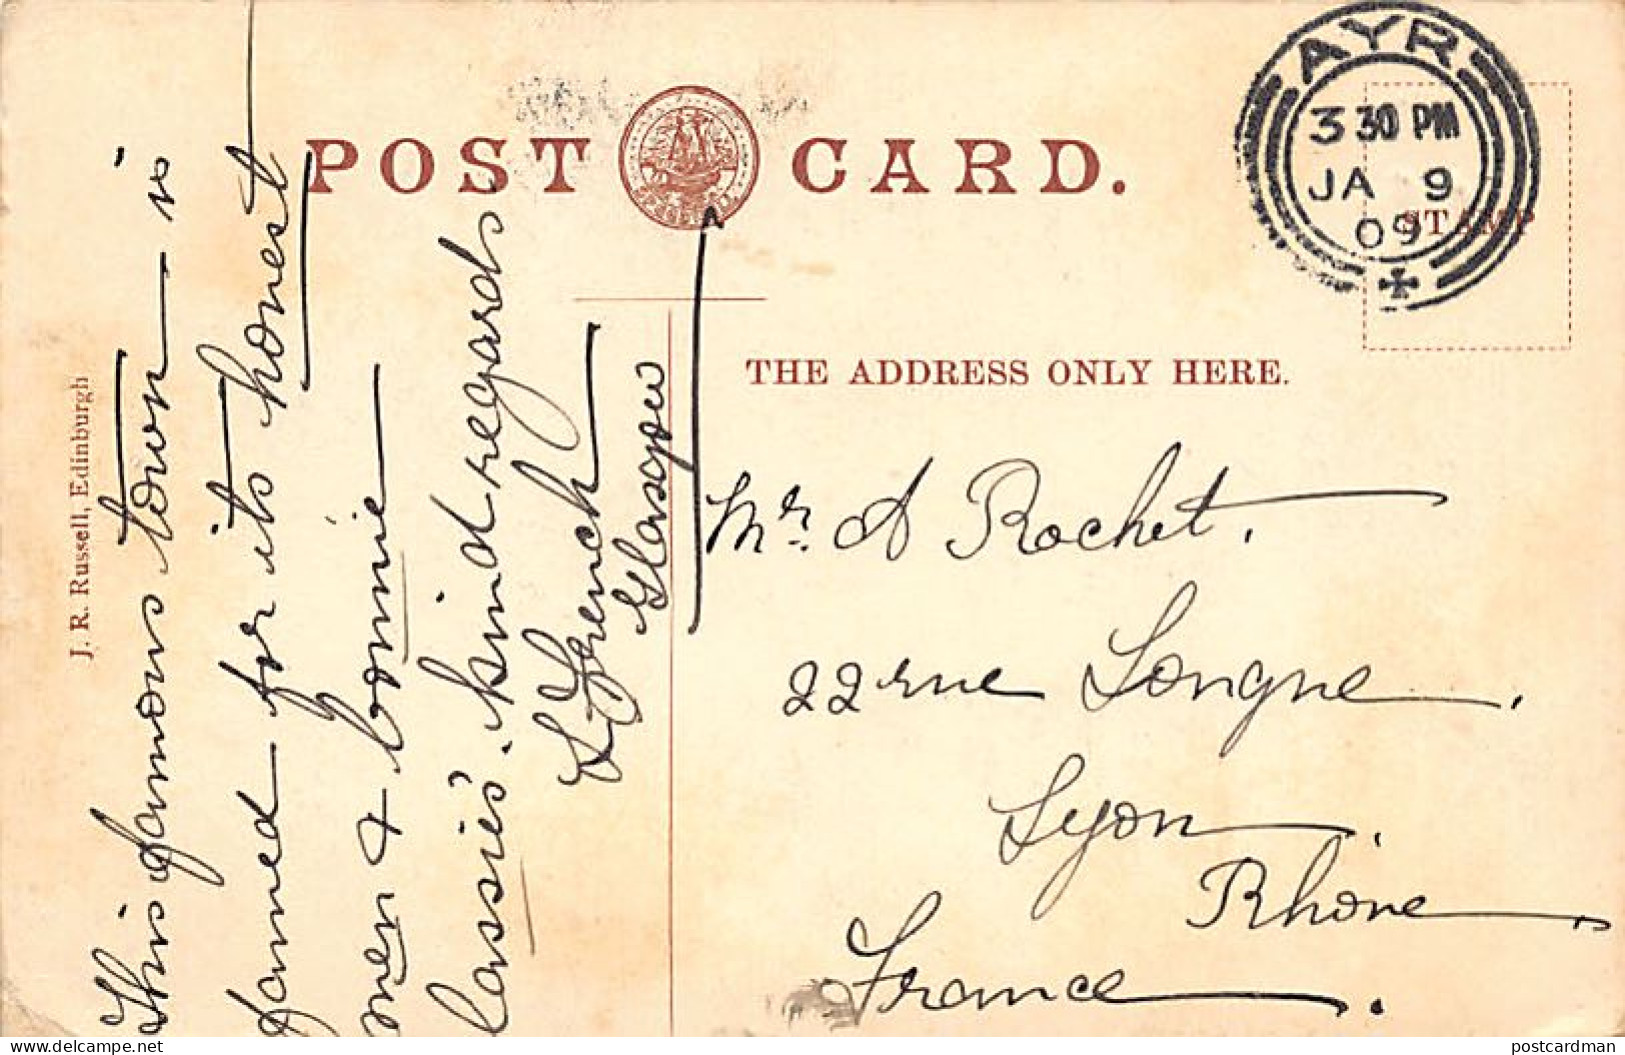 POST CARD.
AYR
3 30 PM
JA 9
09
STAMP
THE ADDRESS ONLY HERE.
J. R. Russell, Edinburgh
This famous town is
famed for its honest
men & bonnie
lassies'. kind regards
French
Glasgow
Mr. A Rochet.
22 rue Longue.
Lyon.
Rhône.
France.
www.delcampe.net
postcardman